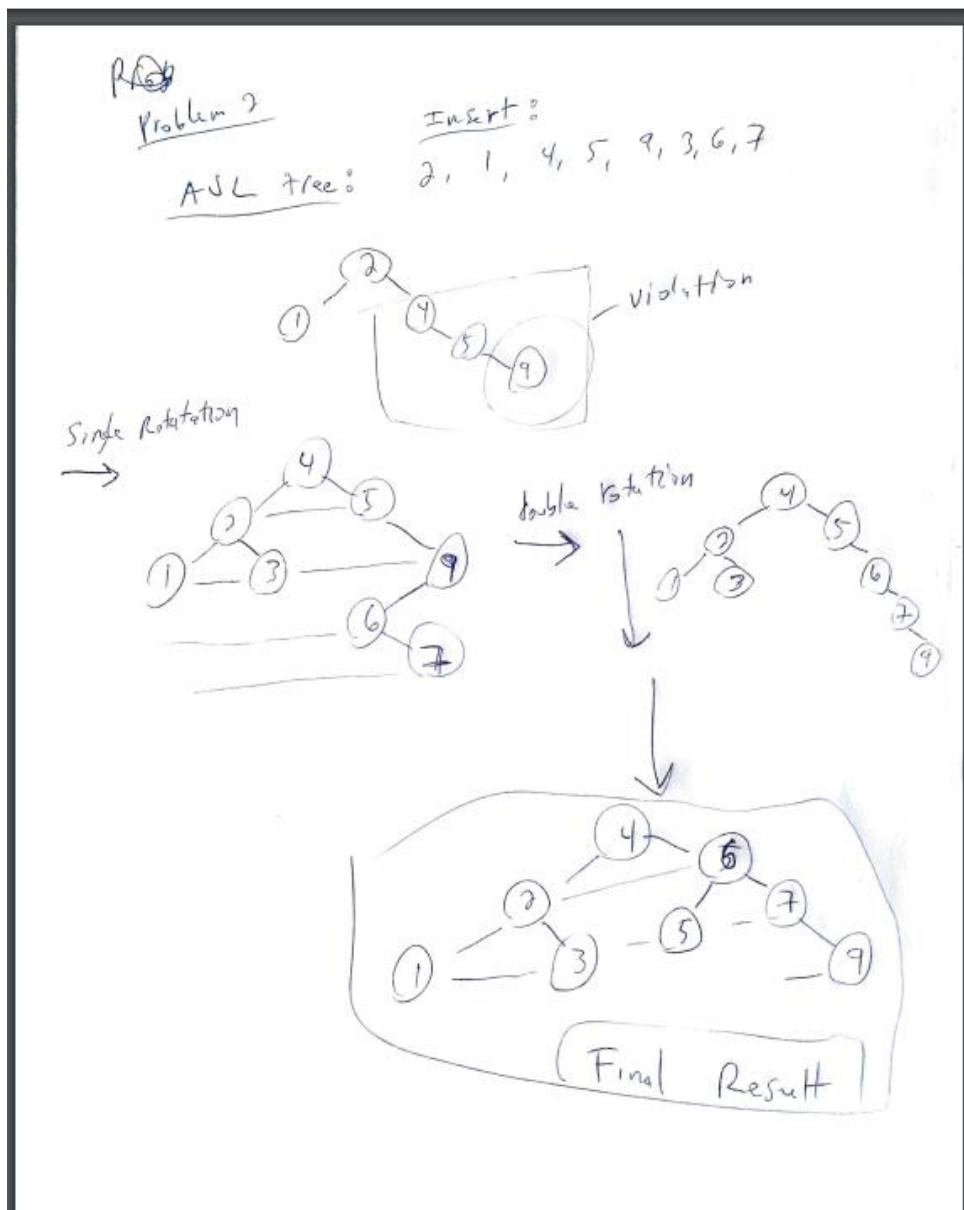 Problem 2
Insert:
AVL tree:
2, 1, 4, 5, 9, 3, 6, 7
2
1
4
5
9
violation
Single Rotation
4
2
5
1
3
9
6
7
double rotation
4
2
5
1
3
6
7
9
4
6
2
5
7
1
3
9
Final Result